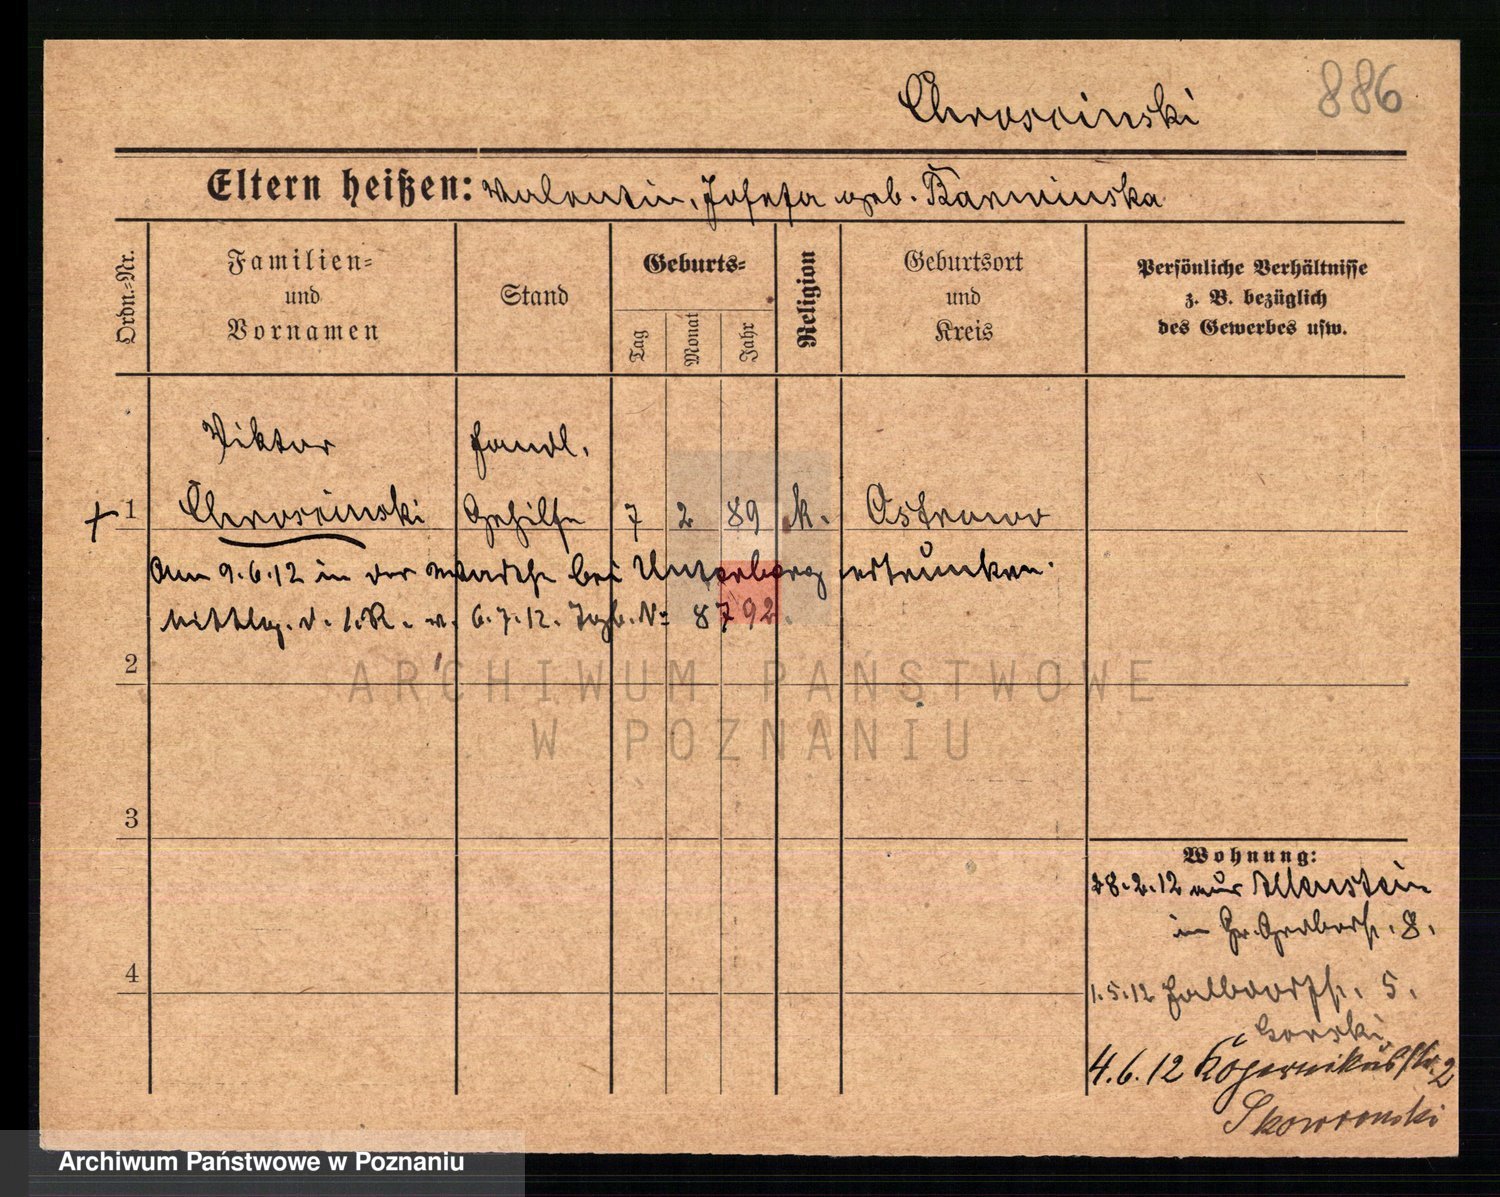 886
Chroscinski
Eltern heißen: Valentin, Josefa geb. Karminska
Ordn.-Nr.
Familien-
und
Vornamen
Stand
Geburts-
Tag
Monat
Jahr
Religion
Geburtsort
und
Kreis
Persönliche Verhältnisse
z. B. bezüglich
des Gewerbes usw.
Viktor Handl.
1 Chroscinski Gehilfe 7 2 89 k. Ostrowo
Am 9.6.12 in der Warthe bei Unterberg ertrunken.
Mittlg. d. I.R. v. 6.7.12. Tgb. No 8792.
2
3
4
Wohnung:
28.2.12 aus Allenstein
in Gr. Gerberstr. 8.
1.5.12 Halbdorfstr. 5.
Gorski
4.6.12 Kopernikusstr. 2
Skowronski
ARCHIWUM PAŃSTWOWE
W POZNANIU
Archiwum Państwowe w Poznaniu